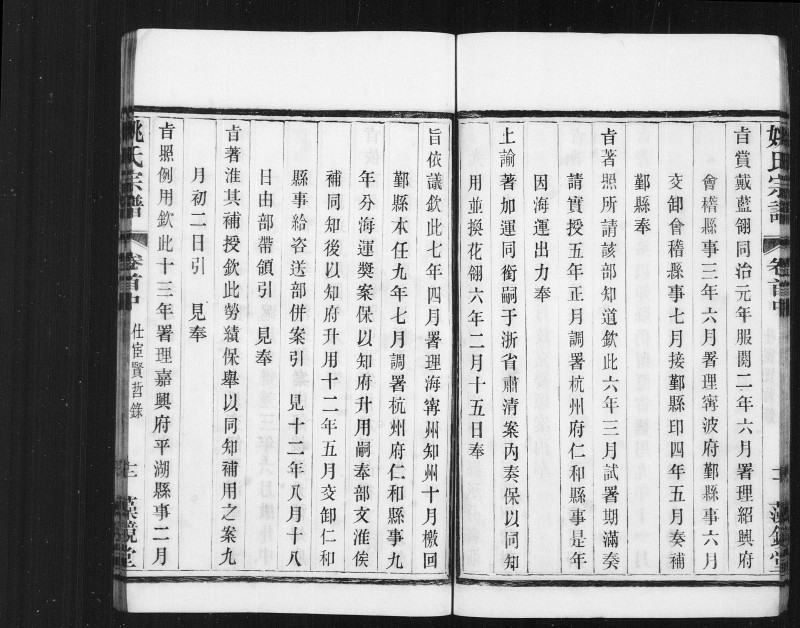 姚氏宗譜
卷首中
藻鏡堂
旨賞戴藍翎同治元年服闋二年六月署理紹興府
會稽縣事三年六月署理甯波府鄞縣事六月
交卸會稽縣事七月接鄞縣印四年五月奏補
鄞縣奉
旨著照所請該部知道欽此六年三月試署期滿奏
請實授五年正月調署杭州府仁和縣事是年
因海運出力奉
上諭著加運同銜嗣于浙省肅清案內奏保以同知
用並換花翎六年二月十五日奉
旨依議欽此七年四月署理海甯州知州十月檄回
鄞縣本任九年七月調署杭州府仁和縣事九
年分海運獎案保以知府升用嗣奉部文准俟
補同知後以知府升用十二年五月交卸仁和
縣事給咨送部併案引 見十二年八月十八
日由部帶領引 見奉
旨著准其補授欽此勞績保舉以同知補用之案九
月初二日引 見奉
旨照例用欽此十三年署理嘉興府平湖縣事二月
姚氏宗譜
卷首中
仕宦賢哲錄
藻鏡堂